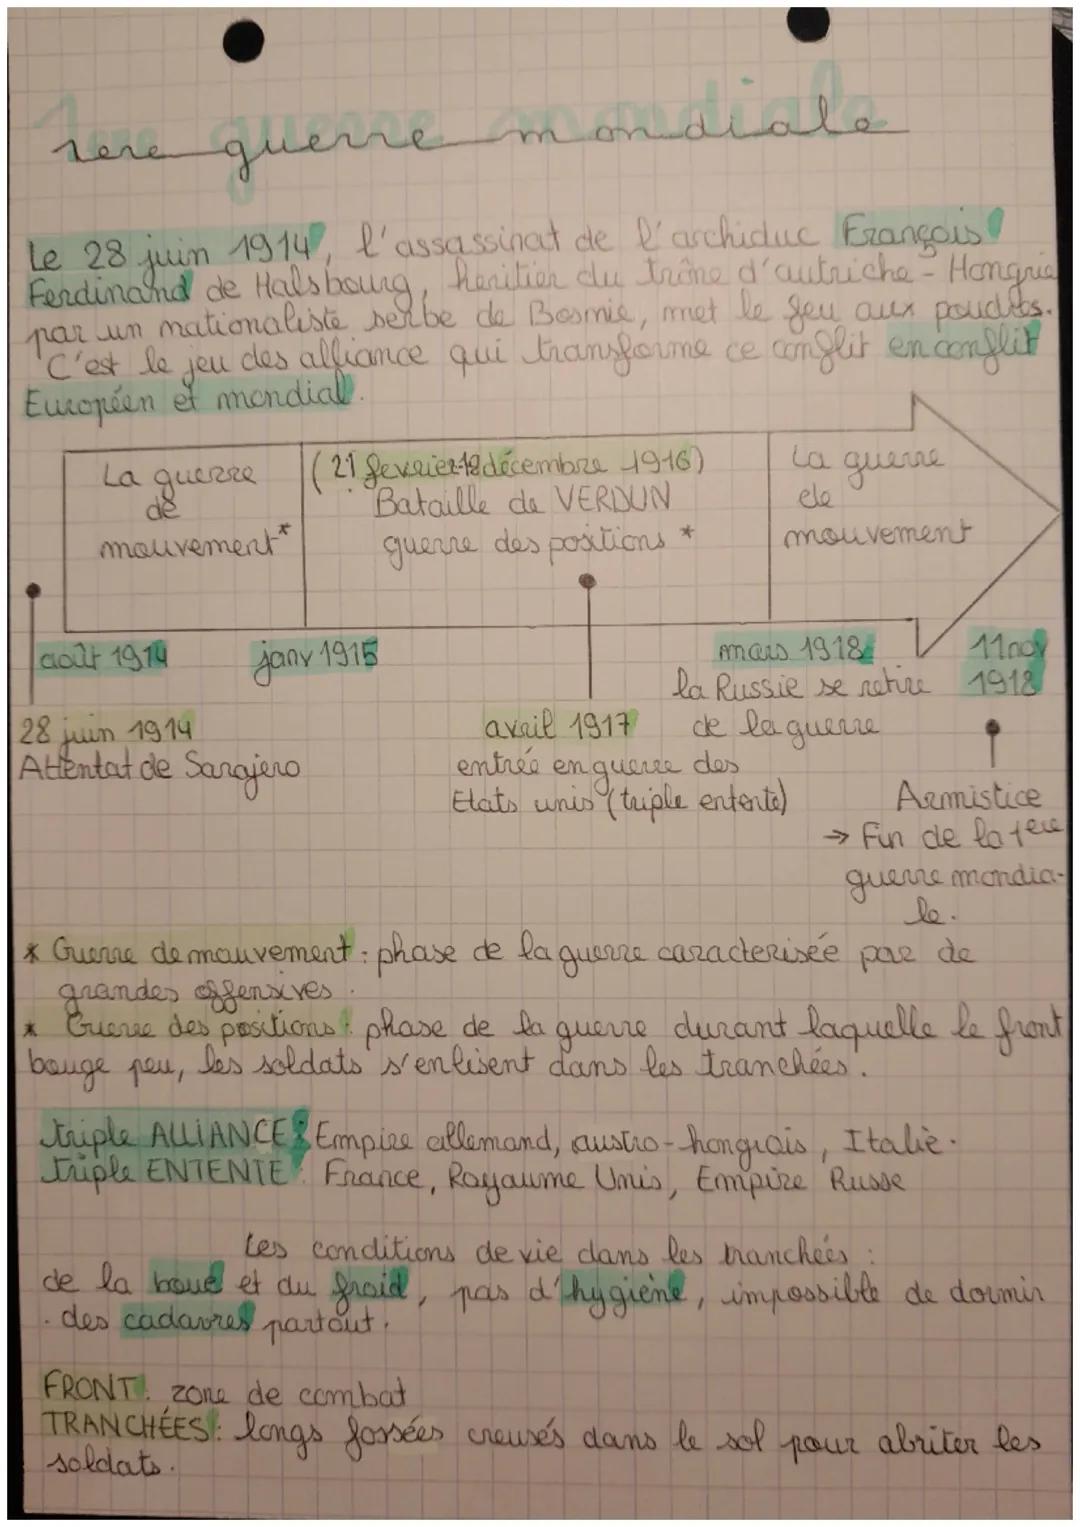 1ere guerre mondiale
Le 28 juin 1914, l'assassinat de l'archiduc François
Ferdinand de Halsbourg, héritier du trône d'autriche - Hongrie
par un nationaliste serbe de Bosnie, met le feu aux poudres.
C'est le jeu des alliance qui transforme ce conflit en conflit
Européen et mondial.
La guerre
de
mouvement*
(21 fevrier-18 décembre 1916)
Bataille de VERDUN
guerre des positions *
La guerre
de
mouvement
août 1914
janv 1915
mars 1918
la Russie se retire
de la guerre
11 nov
1918
28 juin 1914
Attentat de Sarajero
avril 1917
entrée en guerre des
Etats unis (triple entente)
Armistice
→ Fin de la 1ere
guerre mondia-
le.
* Guerre de mouvement : phase de la guerre caracterisée par de
grandes offensives.
* Guerre des positions : phase de la guerre durant laquelle le front
bouge peu, les soldats s'enlisent dans les tranchées.
Triple ALLIANCE : Empire allemand, austro-hongrois, Italie.
Triple ENTENTE : France, Royaume Unis, Empire Russe
Les conditions de vie dans les tranchées :
de la boue et du froid, pas d'hygiène, impossible de dormir
. des cadavres partout.
FRONT : zone de combat
TRANCHÉES : longs fossées creusés dans le sol pour abriter les
soldats.